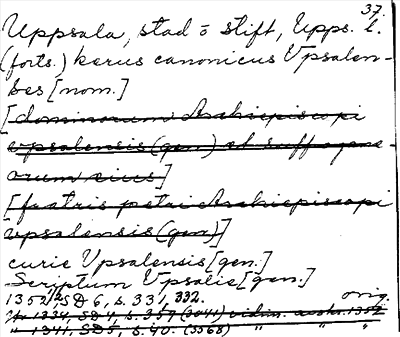 37.
Uppsala, stad o stift, Upps. l.
(forts.) kerus canonicus Vpsalen-
bes [nom.]
[dominorum Archiepiscopi
vpsalensis (gen.) et suffragane-
orum eius]
[fratris petri Archiepiscopi
vpsalensis (gen)]
curie Vpsalensis [gen.]
Scriptum Vpsalie [gen.]
1352 1/2 SD 6, s. 331, 332. orig.
1334, SD 4, s. 359 (3041) vidim. avskr. 1352
" 1341, SD 5, s. 40. (3568) " " "